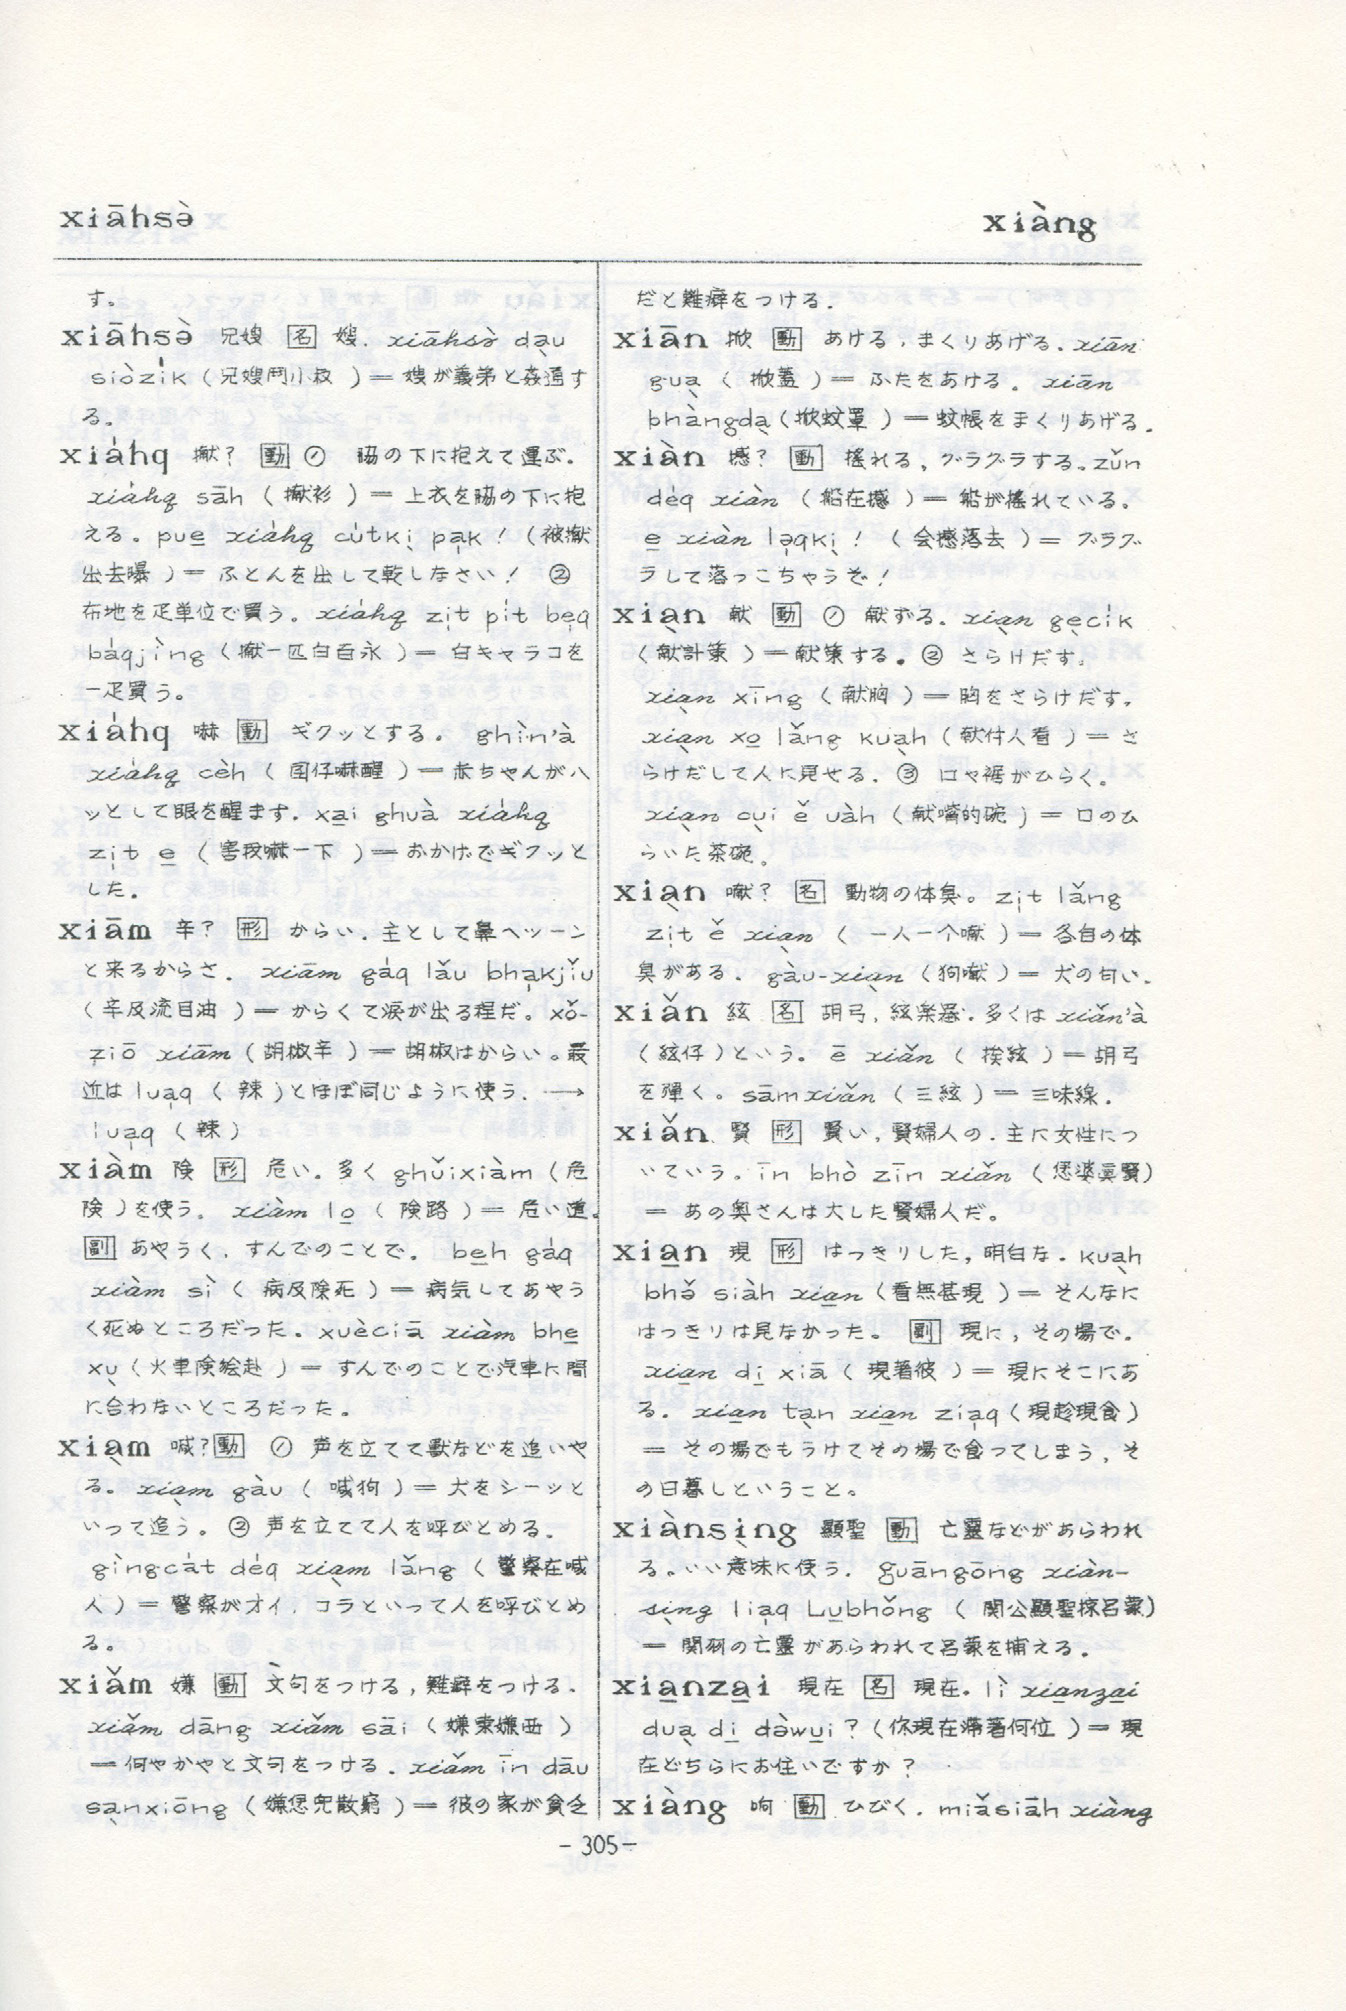 xiāhsə̀
xiàng
す。
xiāhsə̀ 兄嫂 名 嫂. xiāhsə̀ dạu
siə̀zı̍k (兄嫂鬥小叔) ＝ 嫂が義弟と姦通す
る。
xia̍hq 撳? 動 ① 脇の下に抱えて運ぶ.
xia̍hq sāh (撳衫) ＝ 上衣を脇の下に抱
える。pue̲ xia̍hq cu̍tkị pạk! (被撳
出去曝) ＝ ふとんを出して乾しなさい! ②
布地を疋単位で買う。xia̍hq zịt pı̍t bẹq
ba̍qjìng (撳一匹白百永) ＝ 白キャラコを
一疋買う。
xia̍hq 嚇 動 ギクッとする. ghìn'à
xia̍hq cèh (囝仔嚇醒) ＝ 赤ちゃんがハ
ッとして眼を醒ます. xa̲i ghuà xia̍hq
zịt e̲ (害我嚇一下) ＝ おかげでギクッと
した.
xiām 辛? 形 からい. 主として鼻へツーン
と来るからさ. xiām ga̍q lǎu bhạkjǐu
(辛及流目油) ＝ からくて涙が出る程だ。xǒ-
ziō xiām (胡椒辛) ＝ 胡椒はからい。最
近は luạq (辣)とほぼ同じように使う. →
luạq (辣)
xiàm 険 形 危い。多く ghǔixiàm (危
険)を使う. xiàm lo̲ (険路) ＝ 危い道.
副 あやうく, すんでのことで. be̲h ga̍q
xiàm sì (病及険死) ＝ 病気してあやう
く死ぬところだった. xuèciā xiàm bhe̲
xụ (火車険絵赴) ＝ すんでのことで汽車に間
に合わないところだった。
xiạm 喊? 動 ① 声を立てて獣などを追いや
る. xiạm gàu (喊狗) ＝ 犬をシーッと
いって追う. ② 声を立てて人を呼びとめる.
gìngca̍t de̍q xiạm lǎng (警察在喊
人) ＝ 警察がオイ, コラといって人を呼びとめ
る。
xiǎm 嫌 動 文句をつける, 難癖をつける.
xiǎm dāng xiǎm sāi (嫌東嫌西)
＝ 何やかやと文句をつける. xiǎm īn dāu
sạnxiōng (嫌恁兜散窮) ＝ 彼の家が貧乏
だと難癖をつける.
xiān 掀 動 あける, まくりあげる. xiān
guạ (掀蓋) ＝ ふたをあける. xiān
bhàngdạ (掀蚊罩) ＝ 蚊帳をまくりあげる.
xiàn 撼? 動 搖れる, グラグラする. zǔn
de̍q xiàn (船在撼) ＝ 船が搖れている.
e̲ xiàn lạqkị! (会撼落去) ＝ グラグ
ラして落っこちゃうぞ!
xiạn 献 動 ① 献ずる. xiạn gẹcı̍k
(献計策) ＝ 献策する. ② さらけだす.
xiạn xīng (献胸) ＝ 胸をさらけだす.
xiạn xo̲ lǎng kuạh (献付人看) ＝ さ
らけだして人に見せる. ③ 口や裾がひらく.
xiạn cụi ě uàh (献嘴的碗) ＝ 口のひ
らいた茶碗.
xiạn 囐? 名 動物の体臭. zịt lǎng
zịt ě xiạn (一人一个囐) ＝ 各自の体
臭がある. gàu-xiạn (狗囐) ＝ 犬の匂い.
xiǎn 絃 名 胡弓, 絃楽器. 多くは xiǎn'à
(絃仔)という. ē xiǎn (挨絃) ＝ 胡弓
を弾く. sāmxiǎn (三絃) ＝ 三味線.
xiǎn 賢 形 賢い, 賢婦人の. 主に女性につ
いていう. īn bhò zīn xiǎn (恁婆眞賢)
＝ あの奥さんは大した賢婦人だ。
xia̲n 現 形 はっきりした, 明白な. kuạh
bhə̌ siàh xia̲n (看無甚現) ＝ そんなに
はっきりは見なかった。 副 現に, その場で.
xia̲n di̲ xiā (現著彼) ＝ 現にそこにあ
る. xia̲n tạn xia̲n ziạq (現趁現食)
＝ その場でもうけてその場で食ってしまう, そ
の日暮しということ。
xiànsịng 顯聖 動 亡靈などがあらわれ
る。いい意味に使う. guāngōng xiàn-
sịng liạq Lu̲bhǒng (関公顯聖掠呂蒙)
＝ 関羽の亡靈があらわれて呂蒙を捕える.
xia̲nza̲i 現在 名 現在. lì xia̲nza̲i
duạ di̲ dàwu̲i? (你現在滯著何位) ＝ 現
在どちらにお住いですか?
xiàng 响 動 ひびく. miǎsiāh xiàng
－305－